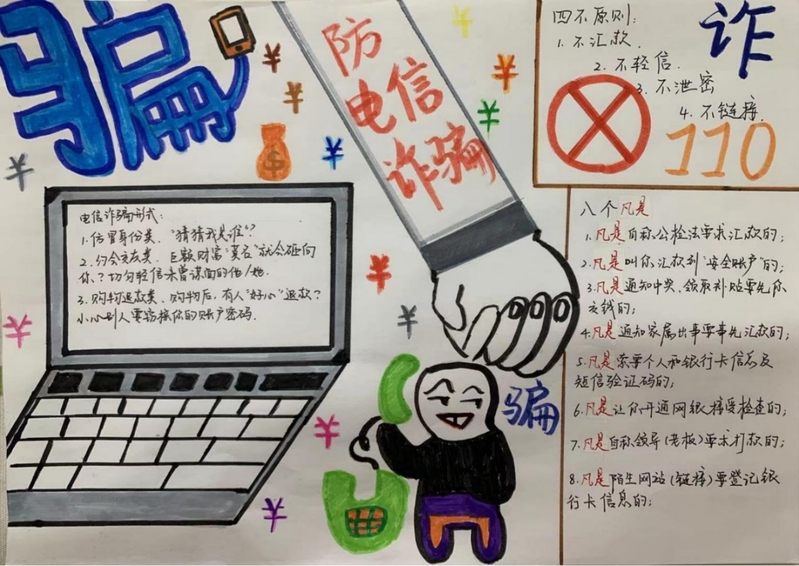 骗
防
电信
诈骗
诈
四不原则：
1. 不汇款.
2. 不轻信.
3. 不泄密
4. 不链接.
110
电信诈骗形式：
1. 仿冒身份类. "猜猜我是谁"？
2. 约会交友类. 巨额财富"莫名"就会砸向
你？切勿轻信未曾谋面的他/她.
3. 购物退款类. 购物后，有人"好心"退款？
小心别人要窃
你的账户密码.
八个凡是
1. 凡是自称公检法要求汇款的；
2. 凡是叫你汇款到"安全账户"的；
3. 凡是通知中奖、领取补贴要先你
交钱的；
4. 凡是通知家属出事要事先汇款的；
5. 凡是索要个人和银行卡信息及
短信验证码的；
6. 凡是让你开通网银接受检查的；
7. 凡是自称领导(老板)要求打款的；
8. 凡是陌生网站(链接)要登记银
行卡信息的；
骗